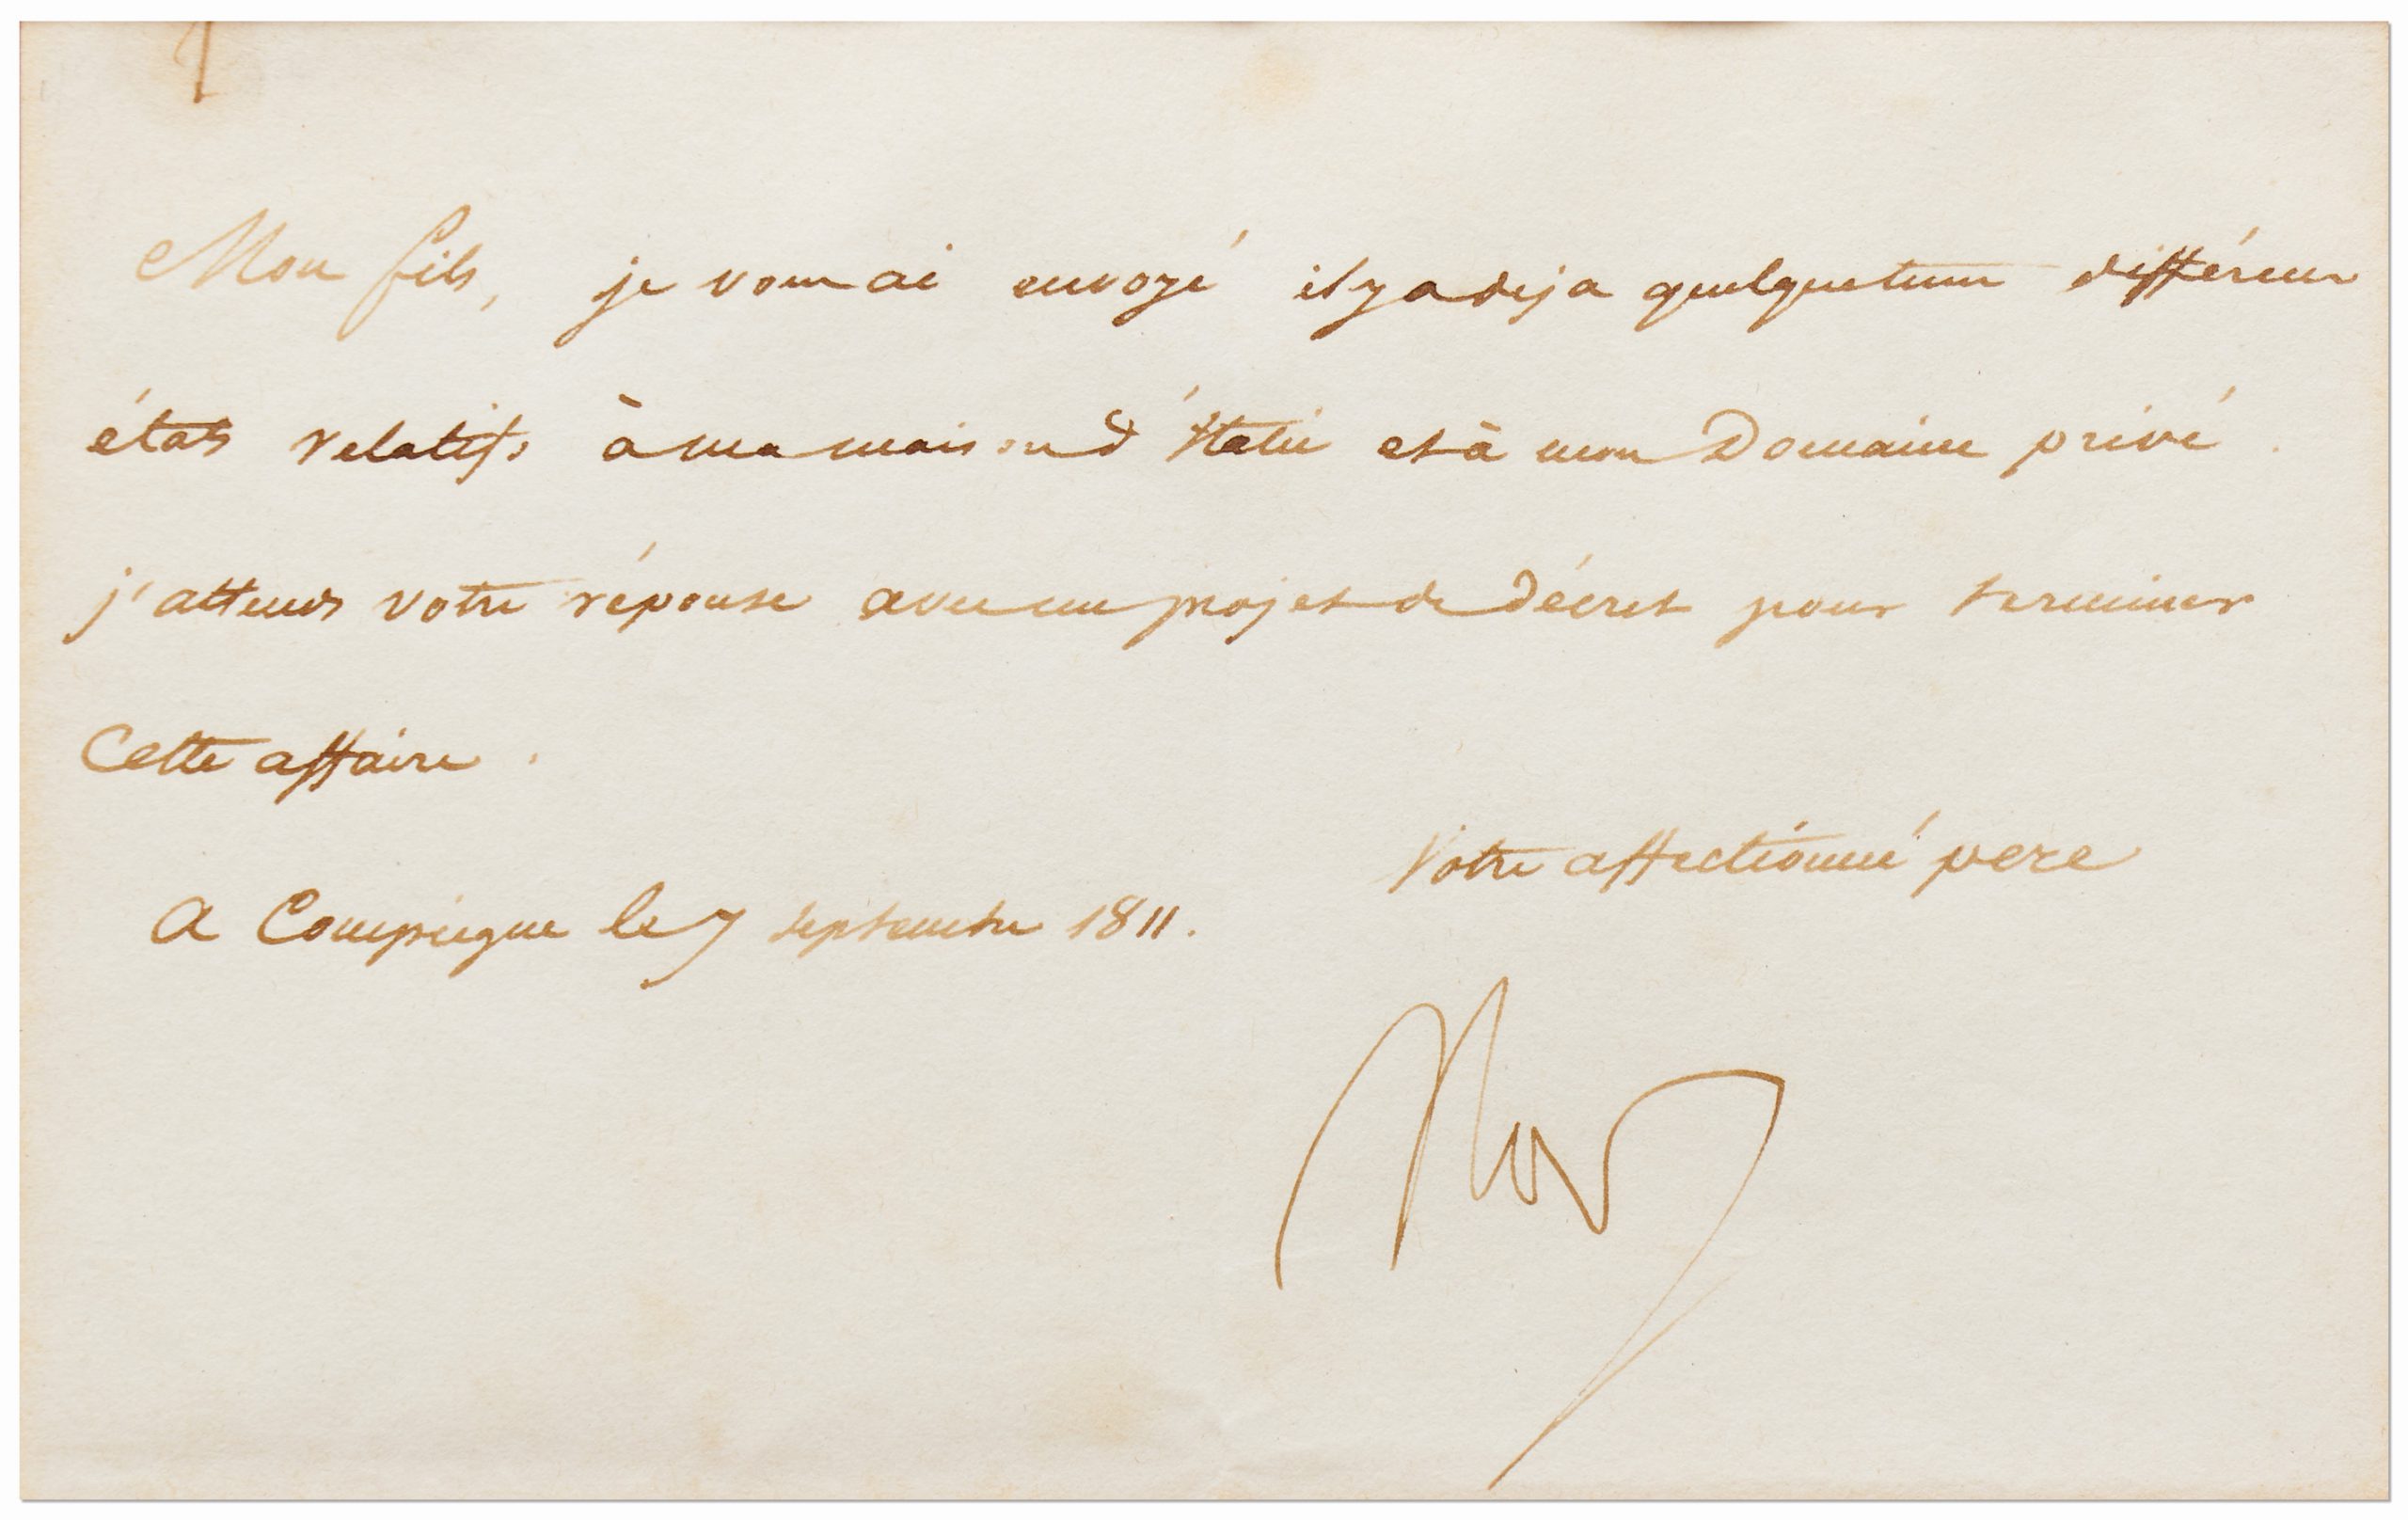 Mon fils, je vous ai envoyé il y a deja quelque tems différens
états relatifs à ma maison d'Italie et à mon Domaine privé.
j'attends votre réponse avec un projet de Décret pour terminer
Cette affaire.
Votre affectionné pere
A Compiegne le 7 septembre 1811.
Nap